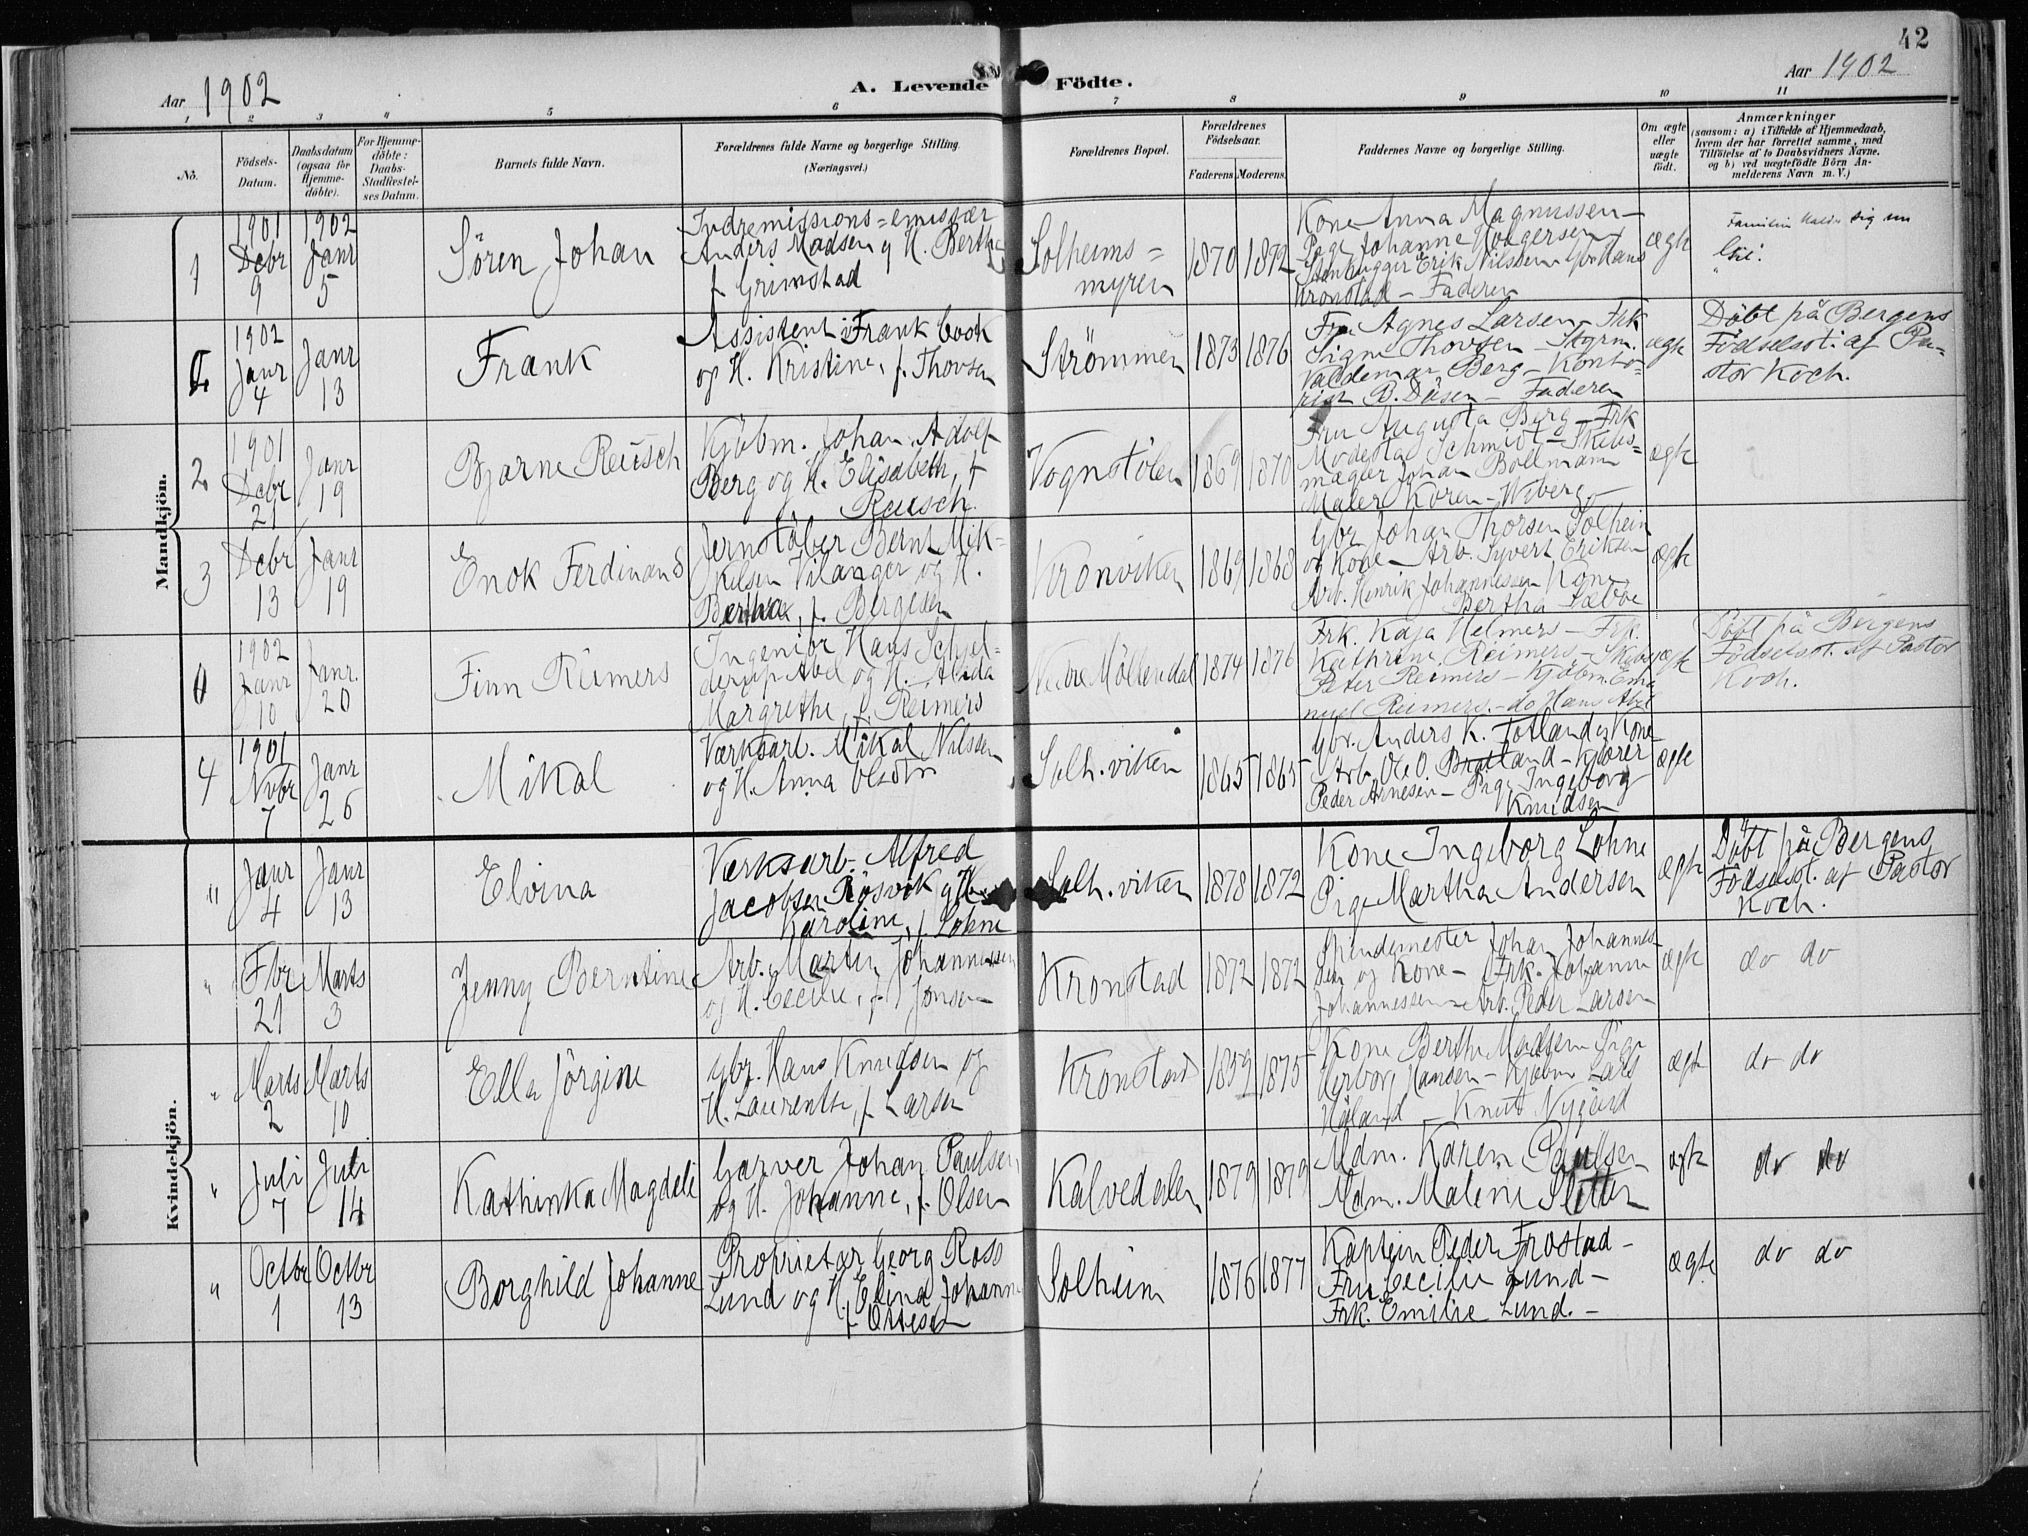 42
Aar 1902
A. Levende Födte.
Aar 1902
1 2 3 4 5 6 7 8 9 10 11
No.
Födsels-
Datum.
Daabsdatum
(ogsaa for
Hjemme-
döbte).
For Hjemme-
döbte:
Daabs-
Stadfæstel-
ses Datum.
Barnets fulde Navn.
Forældrenes fulde Navne og borgerlige Stilling.
(Næringsvei.)
Forældrenes Bopæl.
Forældrenes
Födselsaar.
Faderens. Moderens.
Faddernes Navne og borgerlige Stilling.
Om ægte
eller
uægte
født.
Anmærkninger
(saasom: a) i Tilfælde af Hjemmedaab,
hvem der har forrettet samme, med
Tilföielse af to Daabsvidners Navne.
og b) ved uægtefödte Börn An-
melderens Navn m. V.)
Mandkjön.
1
1901
Debr
9
1902
Janr
5
Sören Johan
Indremissions=emissær
Anders Madsen og H. Berthe
f. Grimstad
Solheims=
myren
1870 1872
Kone Anna Magnussen –
Pige Johanne Holgersen
Stenhugger Erik Nilssen Gbr Hans
Kronstad – Faderen
ægte
1902
Janr
4
Janr
13
Frank
Assistent Frank Cook
og H. Kristine, f. Thovsen
Strömmen
1873 1876
Fru Agnes Larsen – Frk
Signe Thovsen – Styrm.
Valdemar Berg – Konto-
rist B. Døsen – Faderen
ægte
Döbt på Bergens
Födselsst. af Pa-
stor Koch.
2
1901
Debr
21
Janr
19
Bjarne Reusch
Kjöbm. Johan Adolf
Berg og H. Elisabeth, f
Reusch.
Vognstölen
1869 1870
Fru Augusta Berg – Frk
Modesta Schmidt – Skibs-
mægler Johan Bollmann
Maler Koren-Wiberg –
ægte
3
Debr
13
Janr
19
Enok Ferdinand
Jernstöber Bernt Mik-
kelsen Vilanger og H.
Berthe, f. Bergesen
Kronviken
1869 1868
Gbr Johan Thorsen Solheim
og Kone – Arb. Syvert Eriksen
Arb. Henrik Johannessen Kone
Bertha Sæbøe
ægte
1902
Janr
10
Janr.
20
Finn Reimers
Ingeniör Hans Schjel-
derup Abel og H. Alida
Margrethe, f. Reimers
Nedre Möllendal
1874 1876
Frk. Kaja Helmers – Frk.
Kathrine Reimers – Skibs
Peter Reimers – Kjöbm. Ema
nuel Reimers. – do Hans Abel
ægte
Döbt på Bergens
Födselsst. af Pastor
Koch.
4
1901
Nvbr
7
Janr
26
Mikal
Værksarb. Mikal Nilssen
og H. Anna Olsdtr
Solh. viken
1865 1865
Gbr. Anders K. Totland og Kone –
Arb. Ole O. Bratland – Kjører
Peder Arnesen – Pige Ingeborg
Knudsen
ægte
Kvindekjön.
"
Janr
4
Janr
13
Elvina
Værksarb. Alfred
Jacobsen Rösvik og H.
Karoline, f. Lohne
Solh. viken
1878 1872
Kone Ingeborg Lohne
Pige Martha Andersen
ægte
Döbt på Bergens
Födselsst. af Pastor
Koch.
"
Fbr
21
Marts
3
Jenny Berntine
Arb. Martin Johannessen
og H. Cecilie, f. Jonsen
Kronstad
1872 1872
Spindemester Johan Johannes-
sen og Kone – Frk. Johanne
Johannessen – Arb. Peder Larsen
ægte
do do
"
Marts
2
Marts
10
Ella Jörgine
Gbr. Hans Knudsen og
H. Laurentse, f. Larsen
Kronstad
1859 1875
Kone Berthe Madsen Pige
Herborg Hansen – Kjöbm Lars
Håland – Knut Nygård
ægte
do do
"
Juli
7
Juli
14
Kathinka Magdeli
Garver Johan Paulsen
og H. Johanne, f. Olsen
Kalvedalen
1879 1879
Mdm. Karen Paulsen
Mdm. Malene Sletten
ægte
do do
"
Octbr
1
Octbr
13
Borghild Johanne
Proprietær Georg Ross
Lund og H. Elina Johanne
f. Ottesen
Solheim
1876 1877
Kaptein Peder Frostad –
Fru Cecilie Lund –
Frk. Emilie Lund. –
ægte
do do